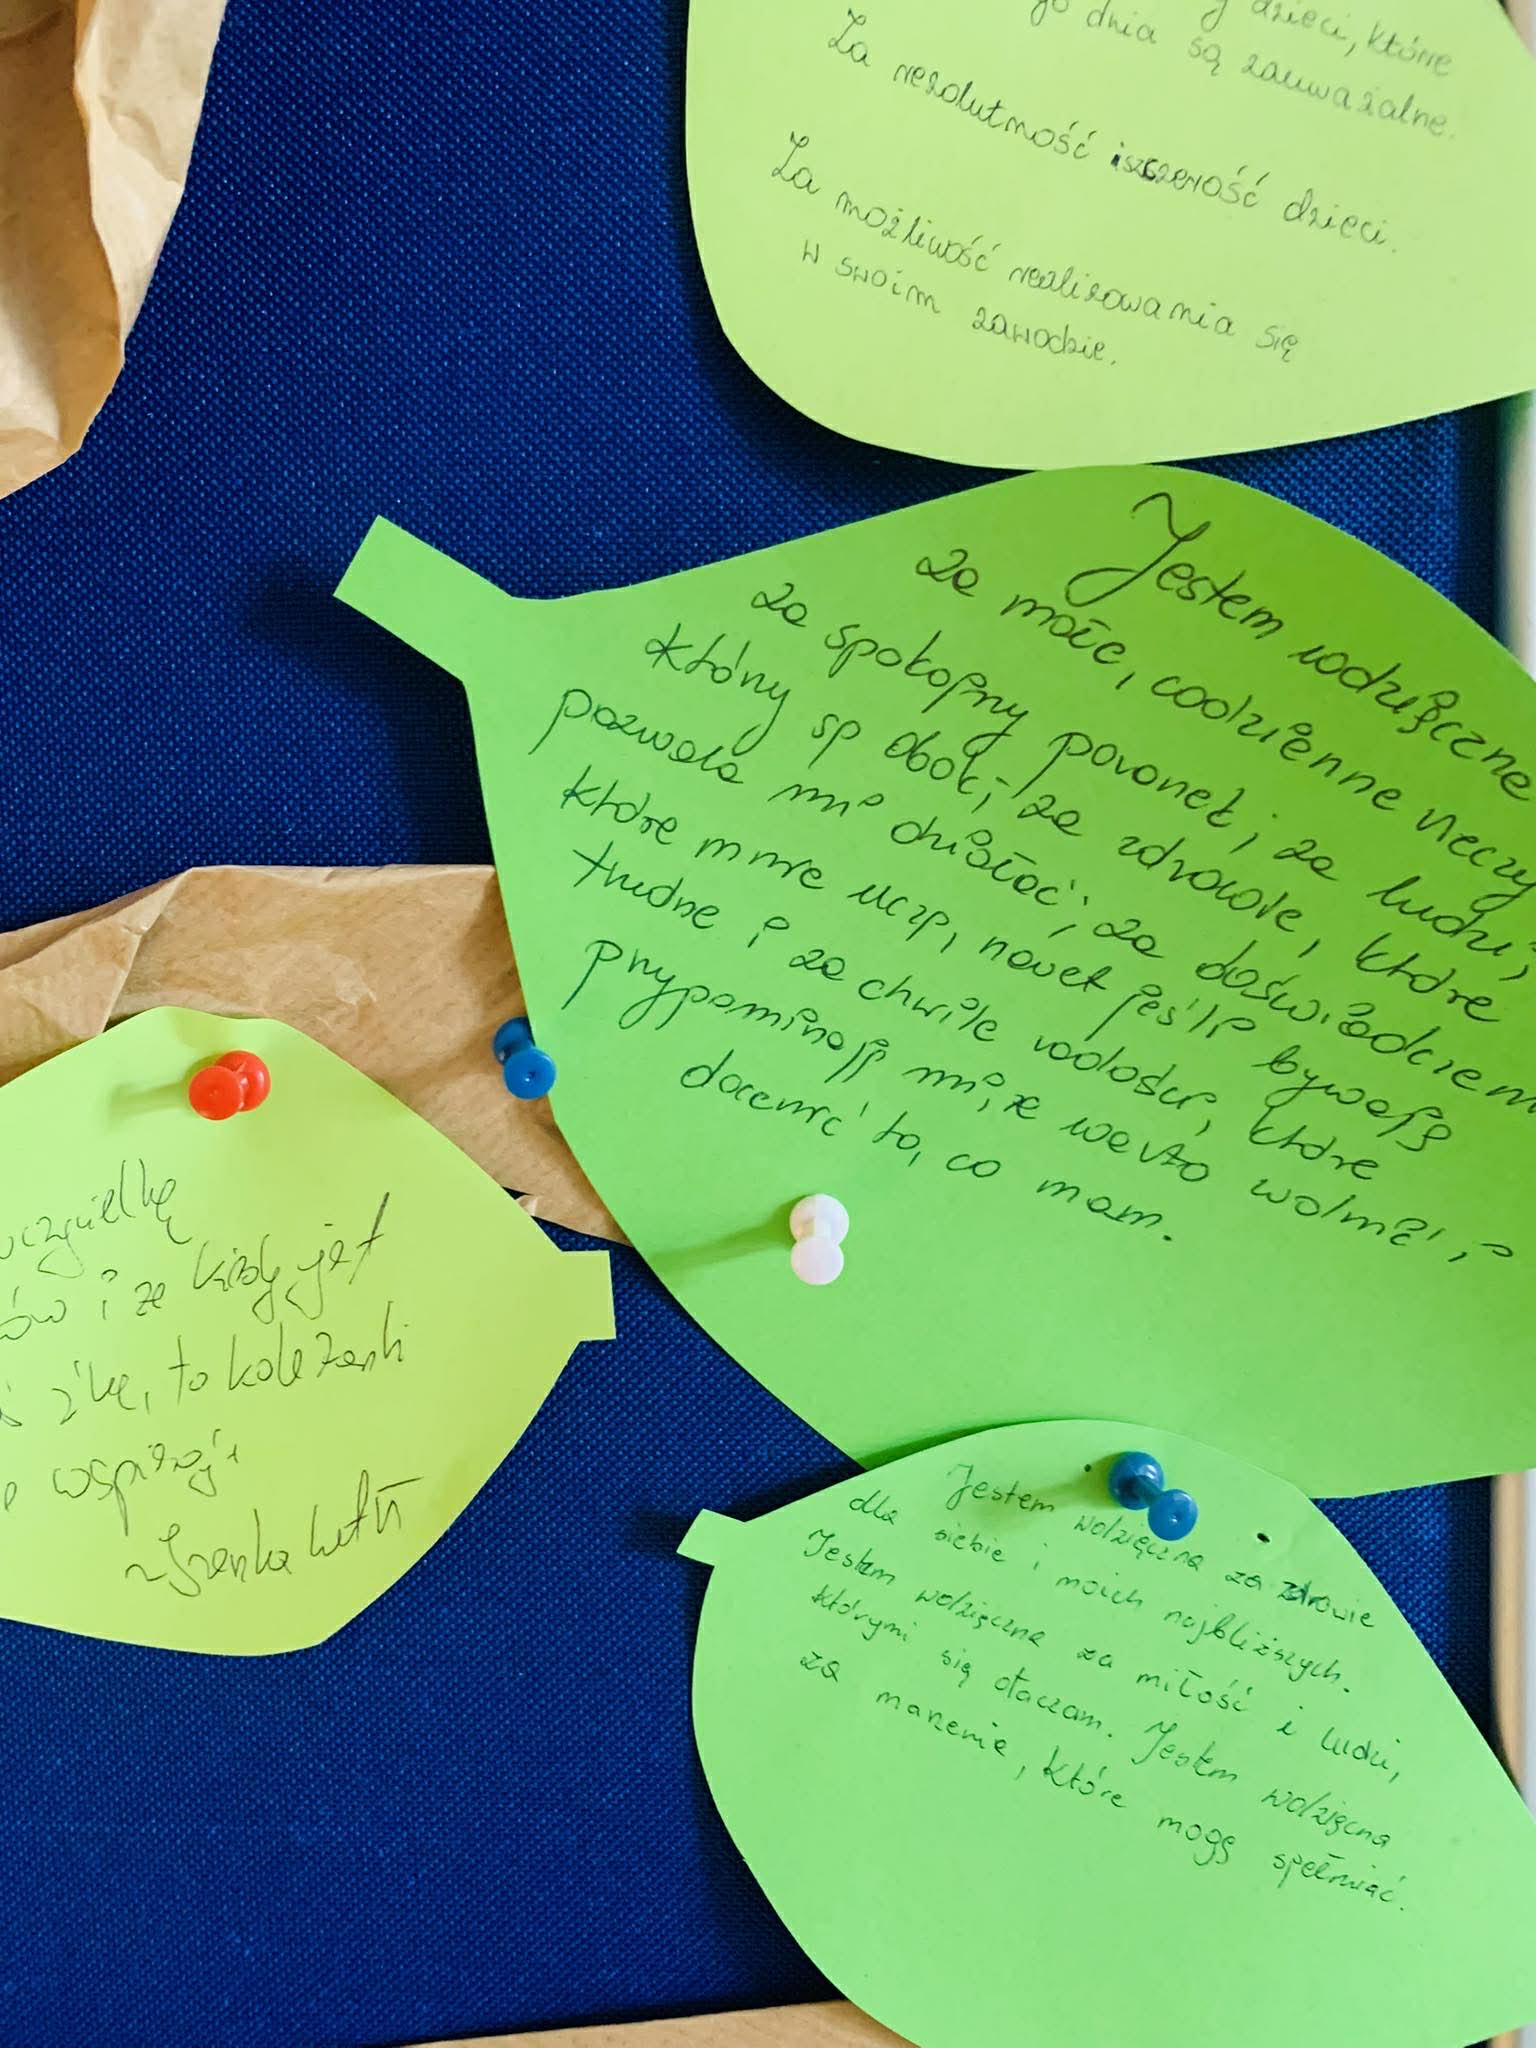 dzieci, które
dnia są zauważalne.
Za rezolutność i szczerość dzieci.
Za możliwość realizowania się
w swoim zawodzie.
Jestem wdzięczne
za małe, codzienne rzeczy
za spokojny poranek; za ludzi,
który są obok; za zdrowie, które
pozwala mi działać; za doświadczenia
które mnie uczą, nawet jeśli bywają
trudne i za chwile radości, które
przypominają mi, że warto wolnić i
docenić to, co mam.
i że każdy jest
to koleżanki
Jestem wdzięczna za zdrowie
dla siebie i moich najbliższych.
Jestem wdzięczna za miłość i ludzi,
którymi się otaczam. Jestem wdzięczna
za marzenia, które mogę spełniać.